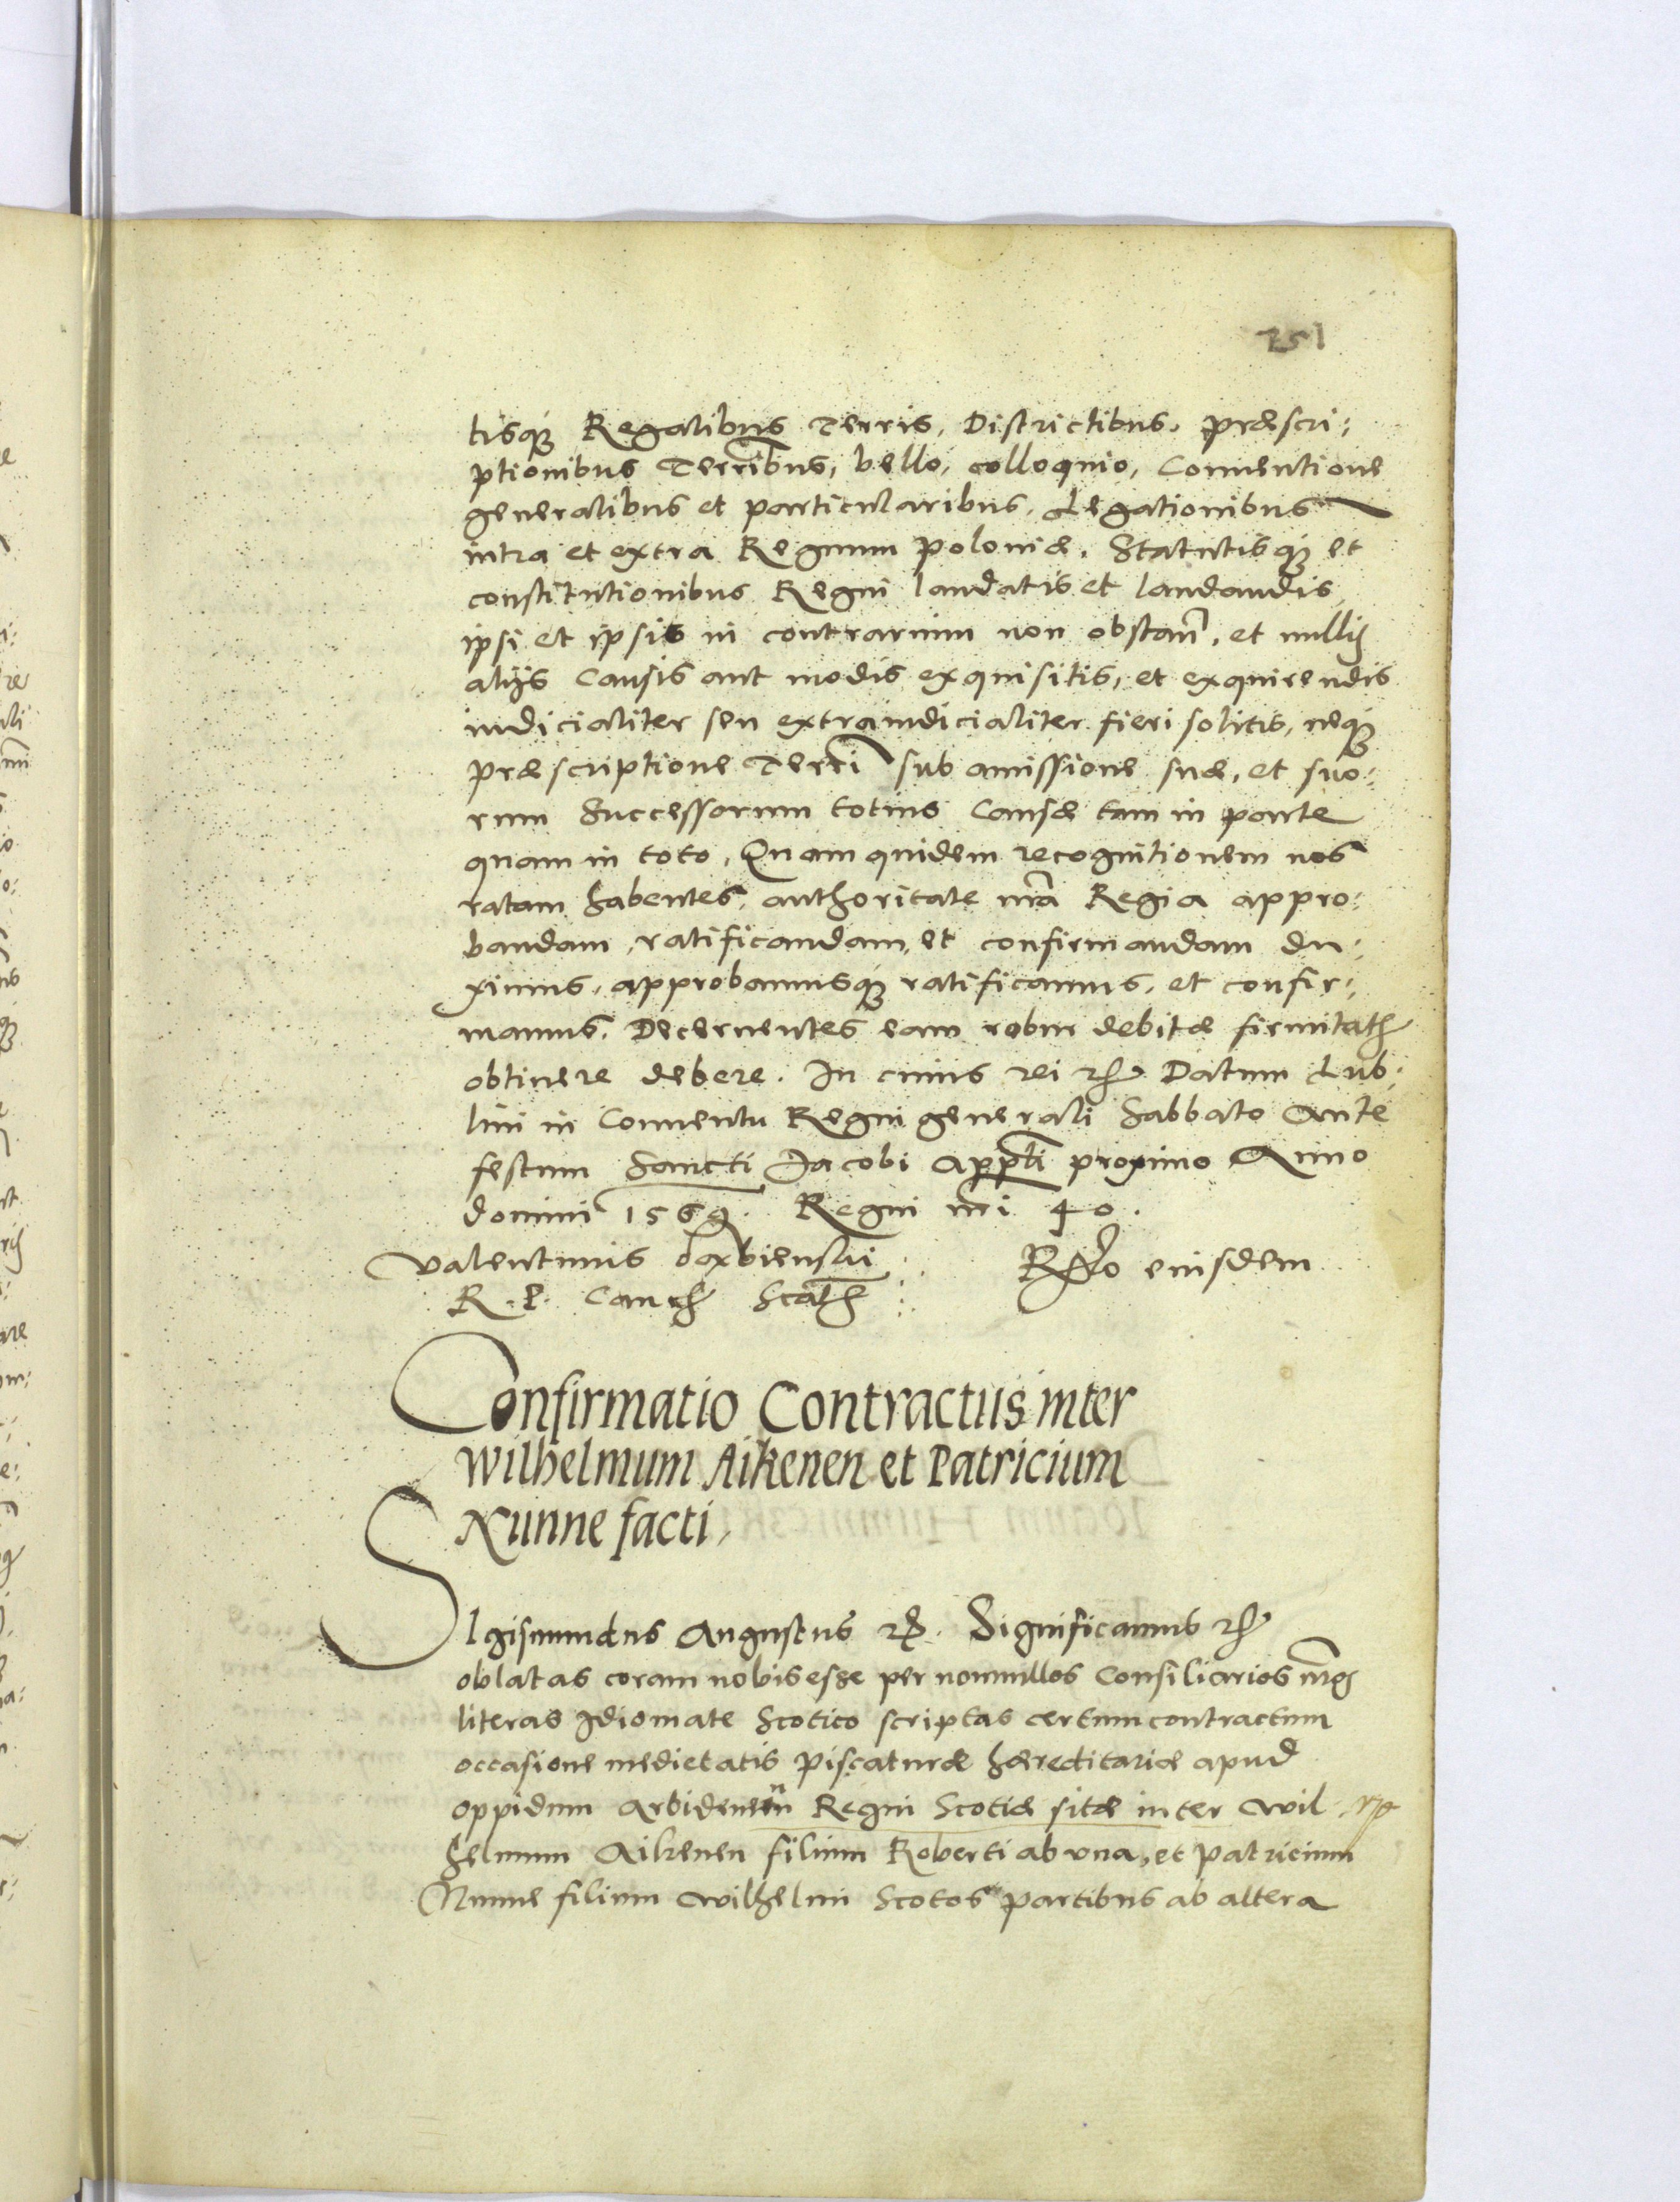 251
tisq; Regalibus Terris, Districtibus, præscri:
ptionibus Terribus, bello, colloquio, Conuentione
generalibus et particularibus, Legationibus
intra et extra Regnum Poloniæ, Statutisq; et
constitutionibus Regni laudatis et laudandis
ipsi et ipsis in contrarium non obstan, et nullis
alijs Causis aut modis exquisitis, et exquirendis
iudicialiter seu extraiudicialiter fieri solitis, neq;
præscriptione Terri sub amissione suæ, et suo:
rum Successorum totius Causæ tam in parte
quam in toto, Quam quidem recognitionem nos
ratam habentes, authoritate nra Regia appro:
bandam, ratificandam, et confirmandam du:
ximus, approbamusq; ratificamus, et confir:
mamus, Decernentes eam robur debitæ firmitatis
obtinere debere. In cuius rei etc Datum Lub:
lini in Conuentu Regni generali Sabbato Ante
festum Sancti Jacobi Appti proximo Anno
domini 1569. Regni nri 40.
Valentinus Dąbienski Rlo eiusdem
R. P. Canc
Confirmatio Contractus inter
Wilhelmum Aikenen et Patricium
Nunne facti,
SIgismundus Augustus etc. Significamus etc
oblatas coram nobis esse per nonnullos Consiliarios nros
literas Idiomate Scotico scriptas certum contractum
occasione medietatis Piscaturæ hæreditariæ apud
oppidum Arbidenen Regni Scotiæ sitæ inter Wil
helmum Aikenen filium Roberti ab una, et Patricium
Nunne filium Wilhelmi Scotos partibus ab altera